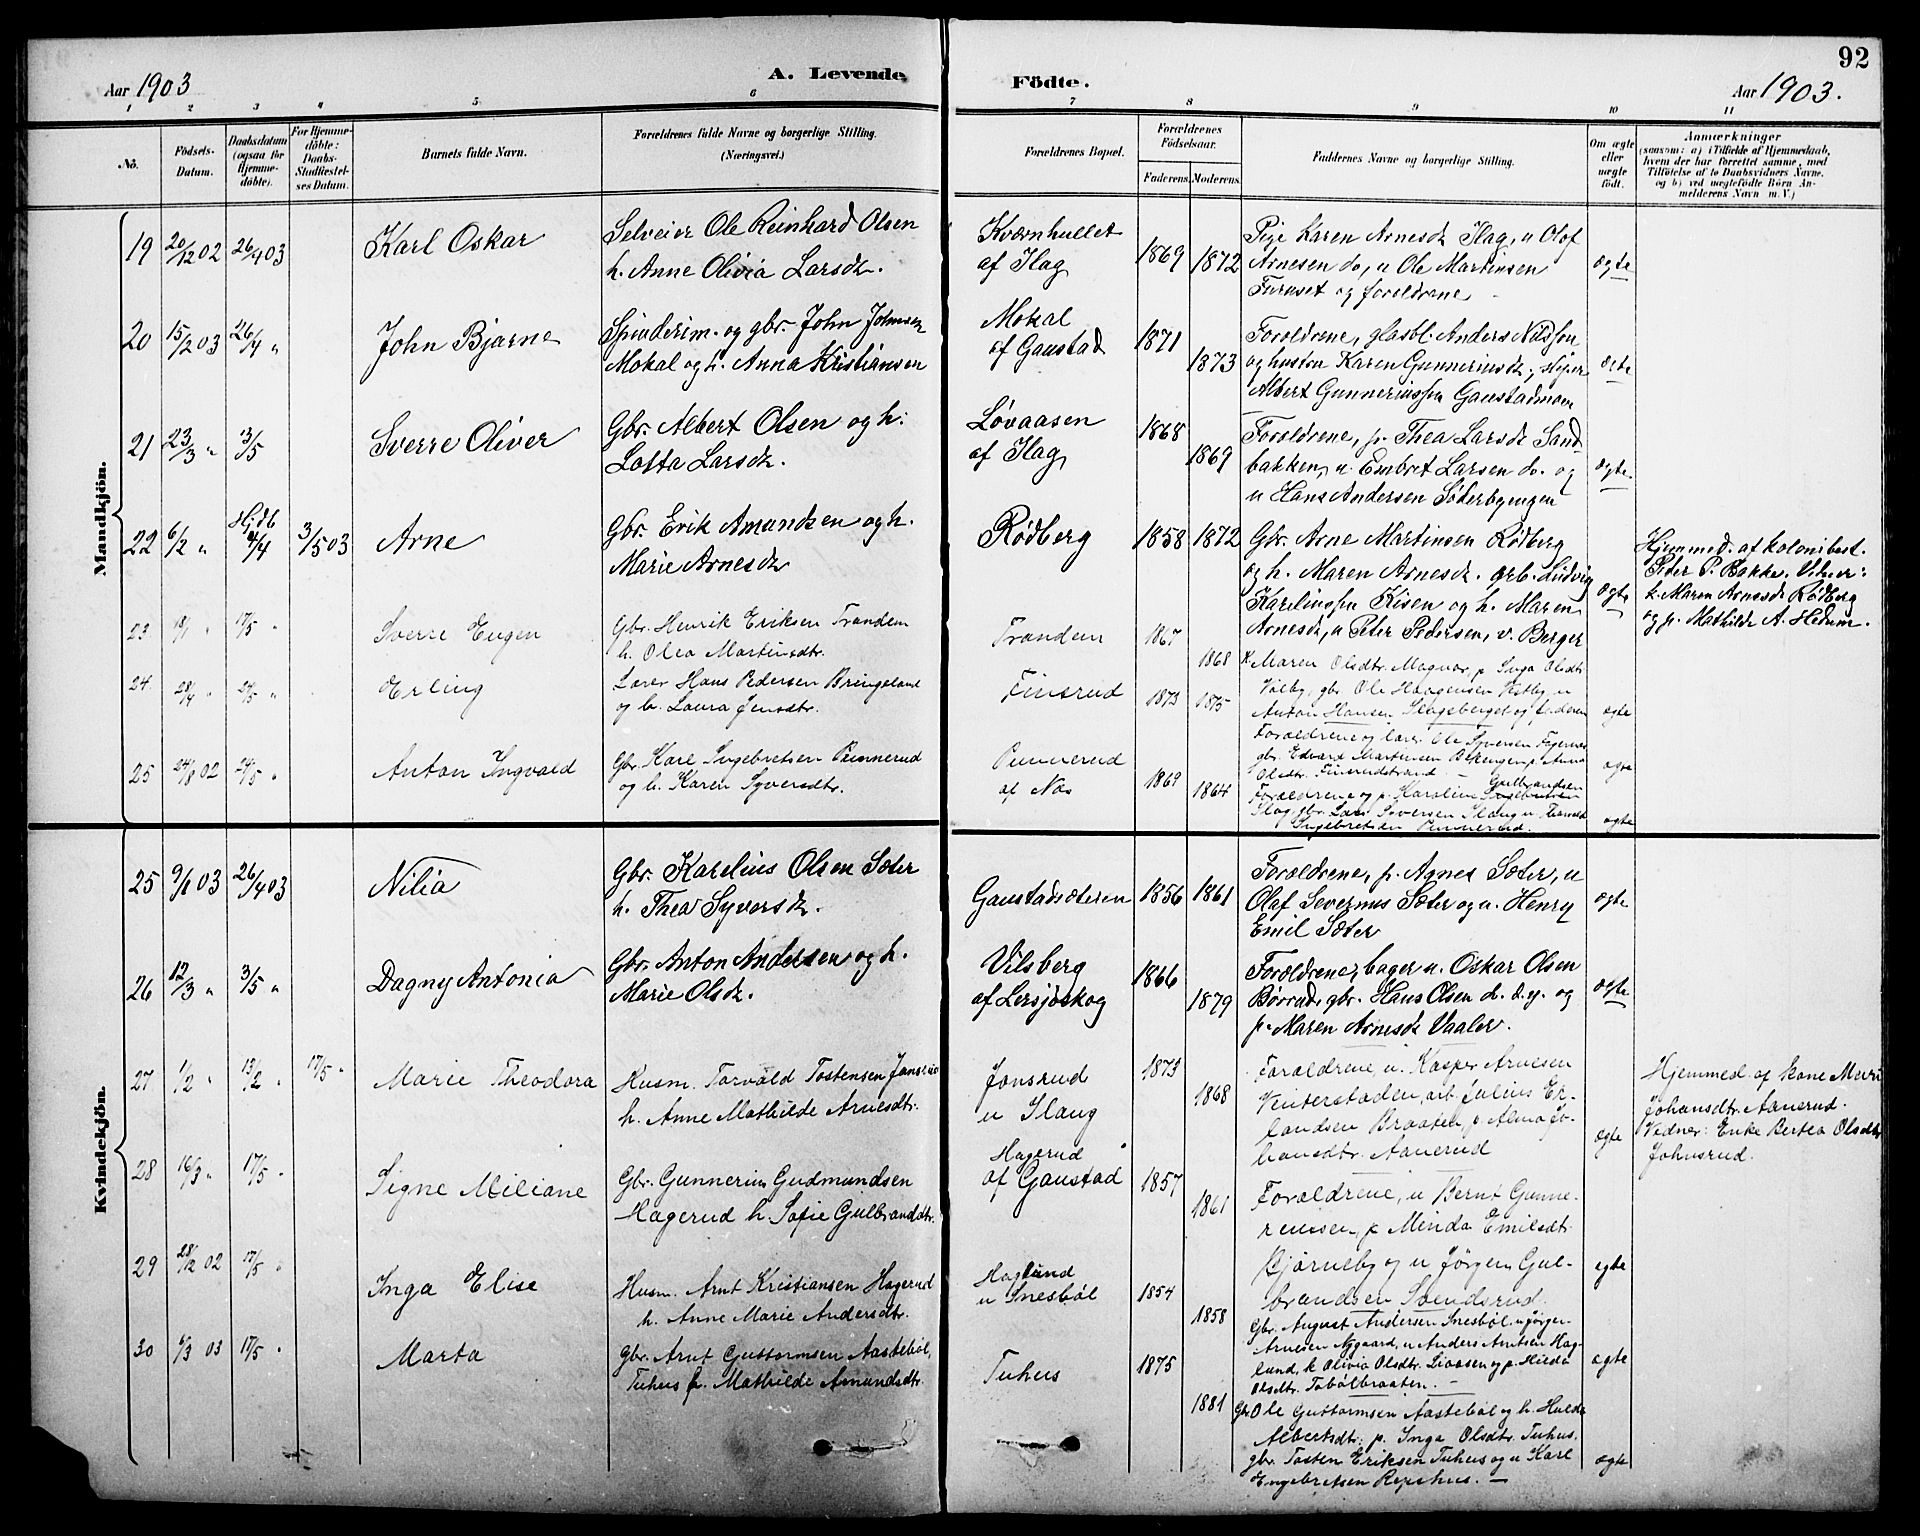 92
Aar 1903
A. Levende
Födte.
Aar 1903.
1 2 3 4 5 6 7 8 9 10 11
No.
Födsels-
Datum.
Daabsdatum
(ogsaa for
Hjemme-
döbte).
For Hjemme-
döbte:
Daabs-
Stadfæstel-
ses Datum.
Barnets fulde Navn.
Forældrenes fulde Navne og borgerlige Stilling.
(Næringsvei.)
Forældrenes Bopæl.
Forældrenes
Födselsaar.
Faderens. Moderens.
Faddernes Navne og borgerlige Stilling.
Om ægte
eller
uægte
födt.
Anmærkninger
(saasom: a) i Tilfælde af Hjemmedaab,
hvem der har forrettet samme, med
Tilföielse af to Daabsvidners Navne,
og b) ved uægtefödte Börn An-
melderens Navn m. V.)
Mandkjön.
19 20/12 02 26/4 03
Karl Oskar
Selveier Ole Reinhard Olsen
h. Anne Olivia Larsdr.
Kværnhullet
af Ilag
1869 1872
Pige Karen Arnesdr Ilag, u Olof
Arnesen do, u Ole Martinsen
Furuset og forældrene
ægte
20 15/2 03 26/4 "
John Bjarne
Spinderim. og gbr. John Johnsen
Mokal og h. Anna Kristiansen
Mokal
af Gaustad
1871 1873
Forældrene, glasbl. Anders Nilssen
og hustru Karen Gunneriusdr,
Albert Gunneriussen Gaustadmoen
ægte
21 23/3 " 3/5
Sverre Oliver
Gbr. Albert Olsen og h:
Lotta Larsdr.
Løvaasen
af Ilag
1868 1869
Forældrene, p. Thea Larsdr Sand-
bakken, u. Embret Larsen do. og
u Hans Andersen Söderbyengen
ægte
22 6/2 " Hjdb 4/4 3/5 03
Arne
Gbr. Erik Amundsen og h.
Marie Arnesdr
Rødberg
1858 1872
Gbr. Arne Martinsen Rødberg
og h. Maren Arnesdr. arb. Ludvig
Karelinssen Kisen og h. Maren
Arnesdr, u Peter Pedersen, v. Berger
ægte
Hjemmed. af kolonibest.
Peder P. Bakke. Vitner:
k. Maren Arnesdr Rødberg
og p. Mathilde A. Hedum.
23 18/1 " 17/5 "
Sverre Eugen
Gbr. Henrik Eriksen Tranden
h. Olea Martinsdtr.
Tranden
1867 1868
K Maren Olsdtr. Magnor, p Inga Olsdtr.
Volby, gbr. Ole Haagensen Vestby u
Anton Hansen Skogsberget og faderen
ægte
24 28/4 " 24/5 "
Erling
Lærer Hans Pedersen Bringeland
og h. Laura Jensdtr.
Finsrud
1873 1875
Forældrene og lærer Ole Syversen Fagernes
gbr. Edvard Martinsen p. Anna
Olsdtr. Finsrudstrand.
ægte
25 24/8 02 24/5 "
Anton Ingvald
Gbr. Karl Ingebretsen Punnerud
og h. Karen Syversdtr.
Punnerud
af Nos
1869 1864
Forældrene og p. Karoline Gulbrandsen
Ilag, gbr. Lars Syversen
Ingebretsen Punnerud.
ægte
Kvindekjön.
25 9/1 03 26/4 03
Nilia
Gbr. Karelius Olsen Sæter
h. Thea Syversdr.
Gaustadsæteren
1856 1861
Forældrene, p. Agnes Sæter, u
Olaf Severinus Sæter og u. Henry
Emil Sæter
ægte
26 12/3 " 3/5 "
Dagny Antonia
Gbr. Anton Andersen og h.
Marie Olsdr.
Vilsberg
af Lersjøskog
1866 1879
Forældrene, bager u. Oskar Olsen
Børrud, gbr. Hans Olsen d. d. y. og
p. Maren Arnesdr Vaaler.
ægte
27 1/2 " 13/2 " 17/5 "
Marie Theodora
Husm. Torvald Tostensen Jonsrud
h. Anne Mathilde Arnesdtr.
Jonsrud
u Ilaug
1873 1868
Forældrene, u. Kasper Arnesen
Vinterstaden, arb. Julius Er-
landsen Braaten, p. Alma Jo-
hansdtr. Aanerud
ægte
Hjemmed. af kone Mari
Johansdtr. Aanerud.
Vidner: Enke Bertea Olsdtr.
Johnsrud.
28 16/3 " 17/5 "
Signe Miliane
Gbr. Gunnerius Gudmundsen
Hagerud h. Sofie Gulbrandsdtr.
Hagerud
af Gaustad
1857 1861
Forældrene, u Bernt Gunne-
riusen, p Minda Emilsdtr.
Bjørneby og u Jørgen Gul-
brandsen Svendsrud.
ægte
29 28/12 02 17/5 "
Inga Elise
Husm. Arnt Kristiansen Hagerud
h. Anne Marie Andersdtr.
Haglund
u Snesbøl
1854 1858
Gbr. August Andersen Snesbøl, u Jørgen
Arnesen Nygaard, u Anders Arntsen Hag-
lund, k Olivia Olsdtr. Liaasen og p. Hilda
Olsdtr. Tobølbraaten.
ægte
30 6/3 03 17/5 "
Marta
Gbr. Arnt Guttormsen Aastebøl,
Tuhus h. Mathilde Amundsdtr.
Tuhus
1875 1881
Gbr Ole Guttormsen Aastebøl og h. Hulda
Albertsdtr. p. Inga Olsdtr. Tuhus,
gbr. Tosten Eriksen Tuhus og u Karl
Engebretsen Repshus.
ægte